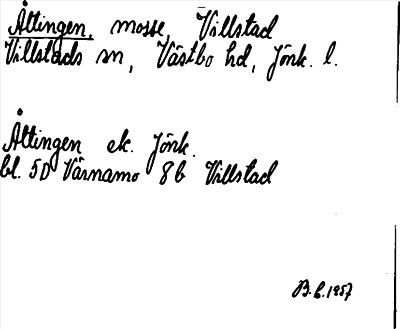 Åltingen, mosse, Villstad
Villstads sn, Västbo hd, Jönk. l.
Åltingen ek. Jönk.
bl. 5D Värnamo 8b Villstad
B.L. 1957